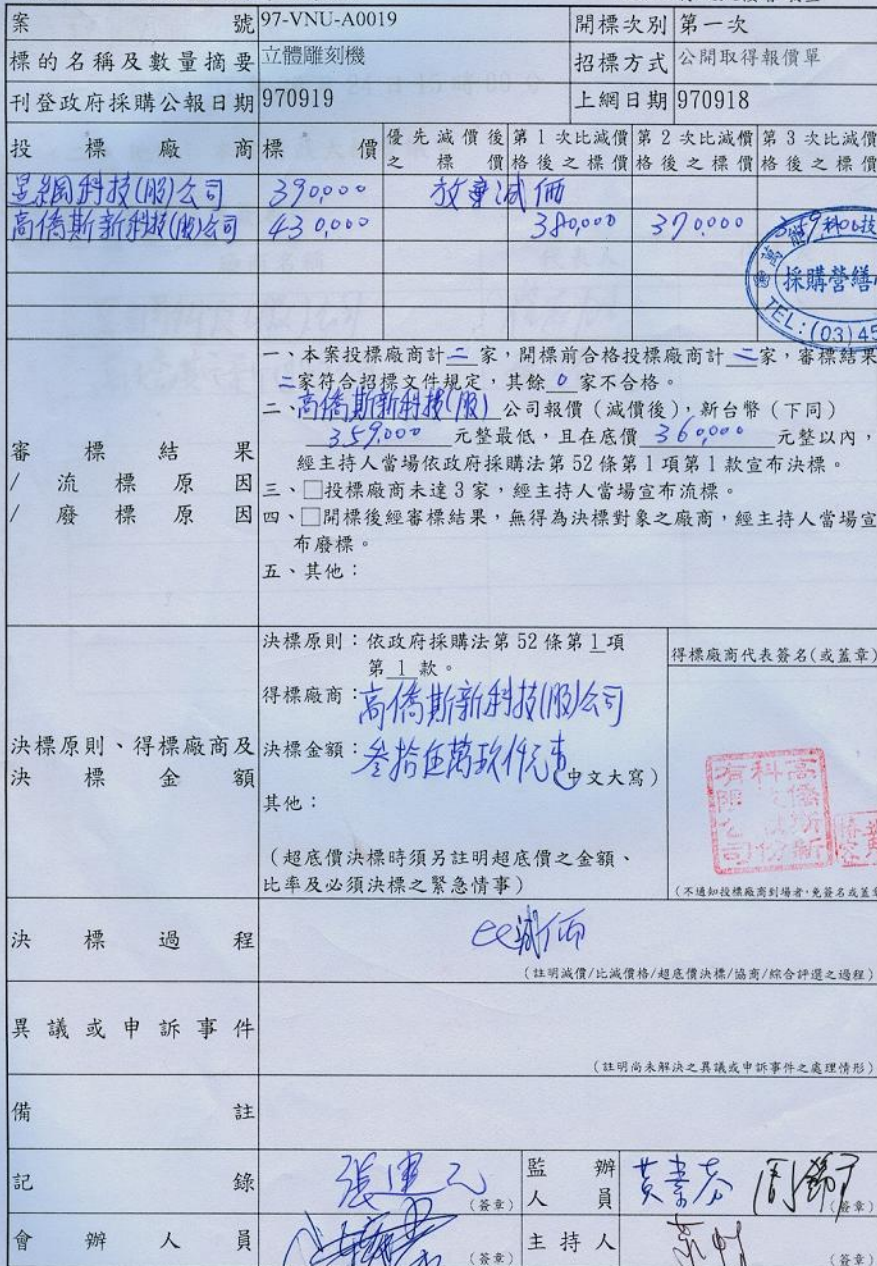 案號 97-VNU-A0019 開標次別 第一次
標的名稱及數量摘要 立體雕刻機 招標方式 公開取得報價單
刊登政府採購公報日期 970919 上網日期 970918
投標廠商 標價 優先減價後之標價 第1次比減價格後之標價 第2次比減價格後之標價 第3次比減價格後之標價
科技(股)公司 390,000 放棄減価
高僑斯新科技(股)公司 430,000 380,000 370,000
採購營繕
TEL:(03)45
一、本案投標廠商計二家,開標前合格投標廠商計二家,審標結果
二家符合招標文件規定,其餘0家不合格。
二、高僑斯新科技(股)公司報價(減價後),新台幣(下同)
359,000元整最低,且在底價360,000元整以內,
經主持人當場依政府採購法第52條第1項第1款宣布決標。
審標結果
/流標原因
/廢標原因
三、□投標廠商未達3家,經主持人當場宣布流標。
四、□開標後經審標結果,無得為決標對象之廠商,經主持人當場宣
布廢標。
五、其他:
決標原則、得標廠商及
決標金額
決標原則:依政府採購法第52條第1項
第1款。
得標廠商:高僑斯新科技(股)公司
決標金額:叁拾伍萬玖仟元整(中文大寫)
其他:
(超底價決標時須另註明超底價之金額、
比率及必須決標之緊急情事)
得標廠商代表簽名(或蓋章)
高僑斯新
科技股份
有限公司
(不通知投標廠商到場者,免簽名或蓋章
決標過程 比減価
(註明減價/比減價格/超底價決標/協商/綜合評選之過程)
異議或申訴事件
(註明尚未解決之異議或申訴事件之處理情形)
備註
記錄 (簽章) 監辦人員 (簽章)
會辦人員 (簽章) 主持人 (簽章)